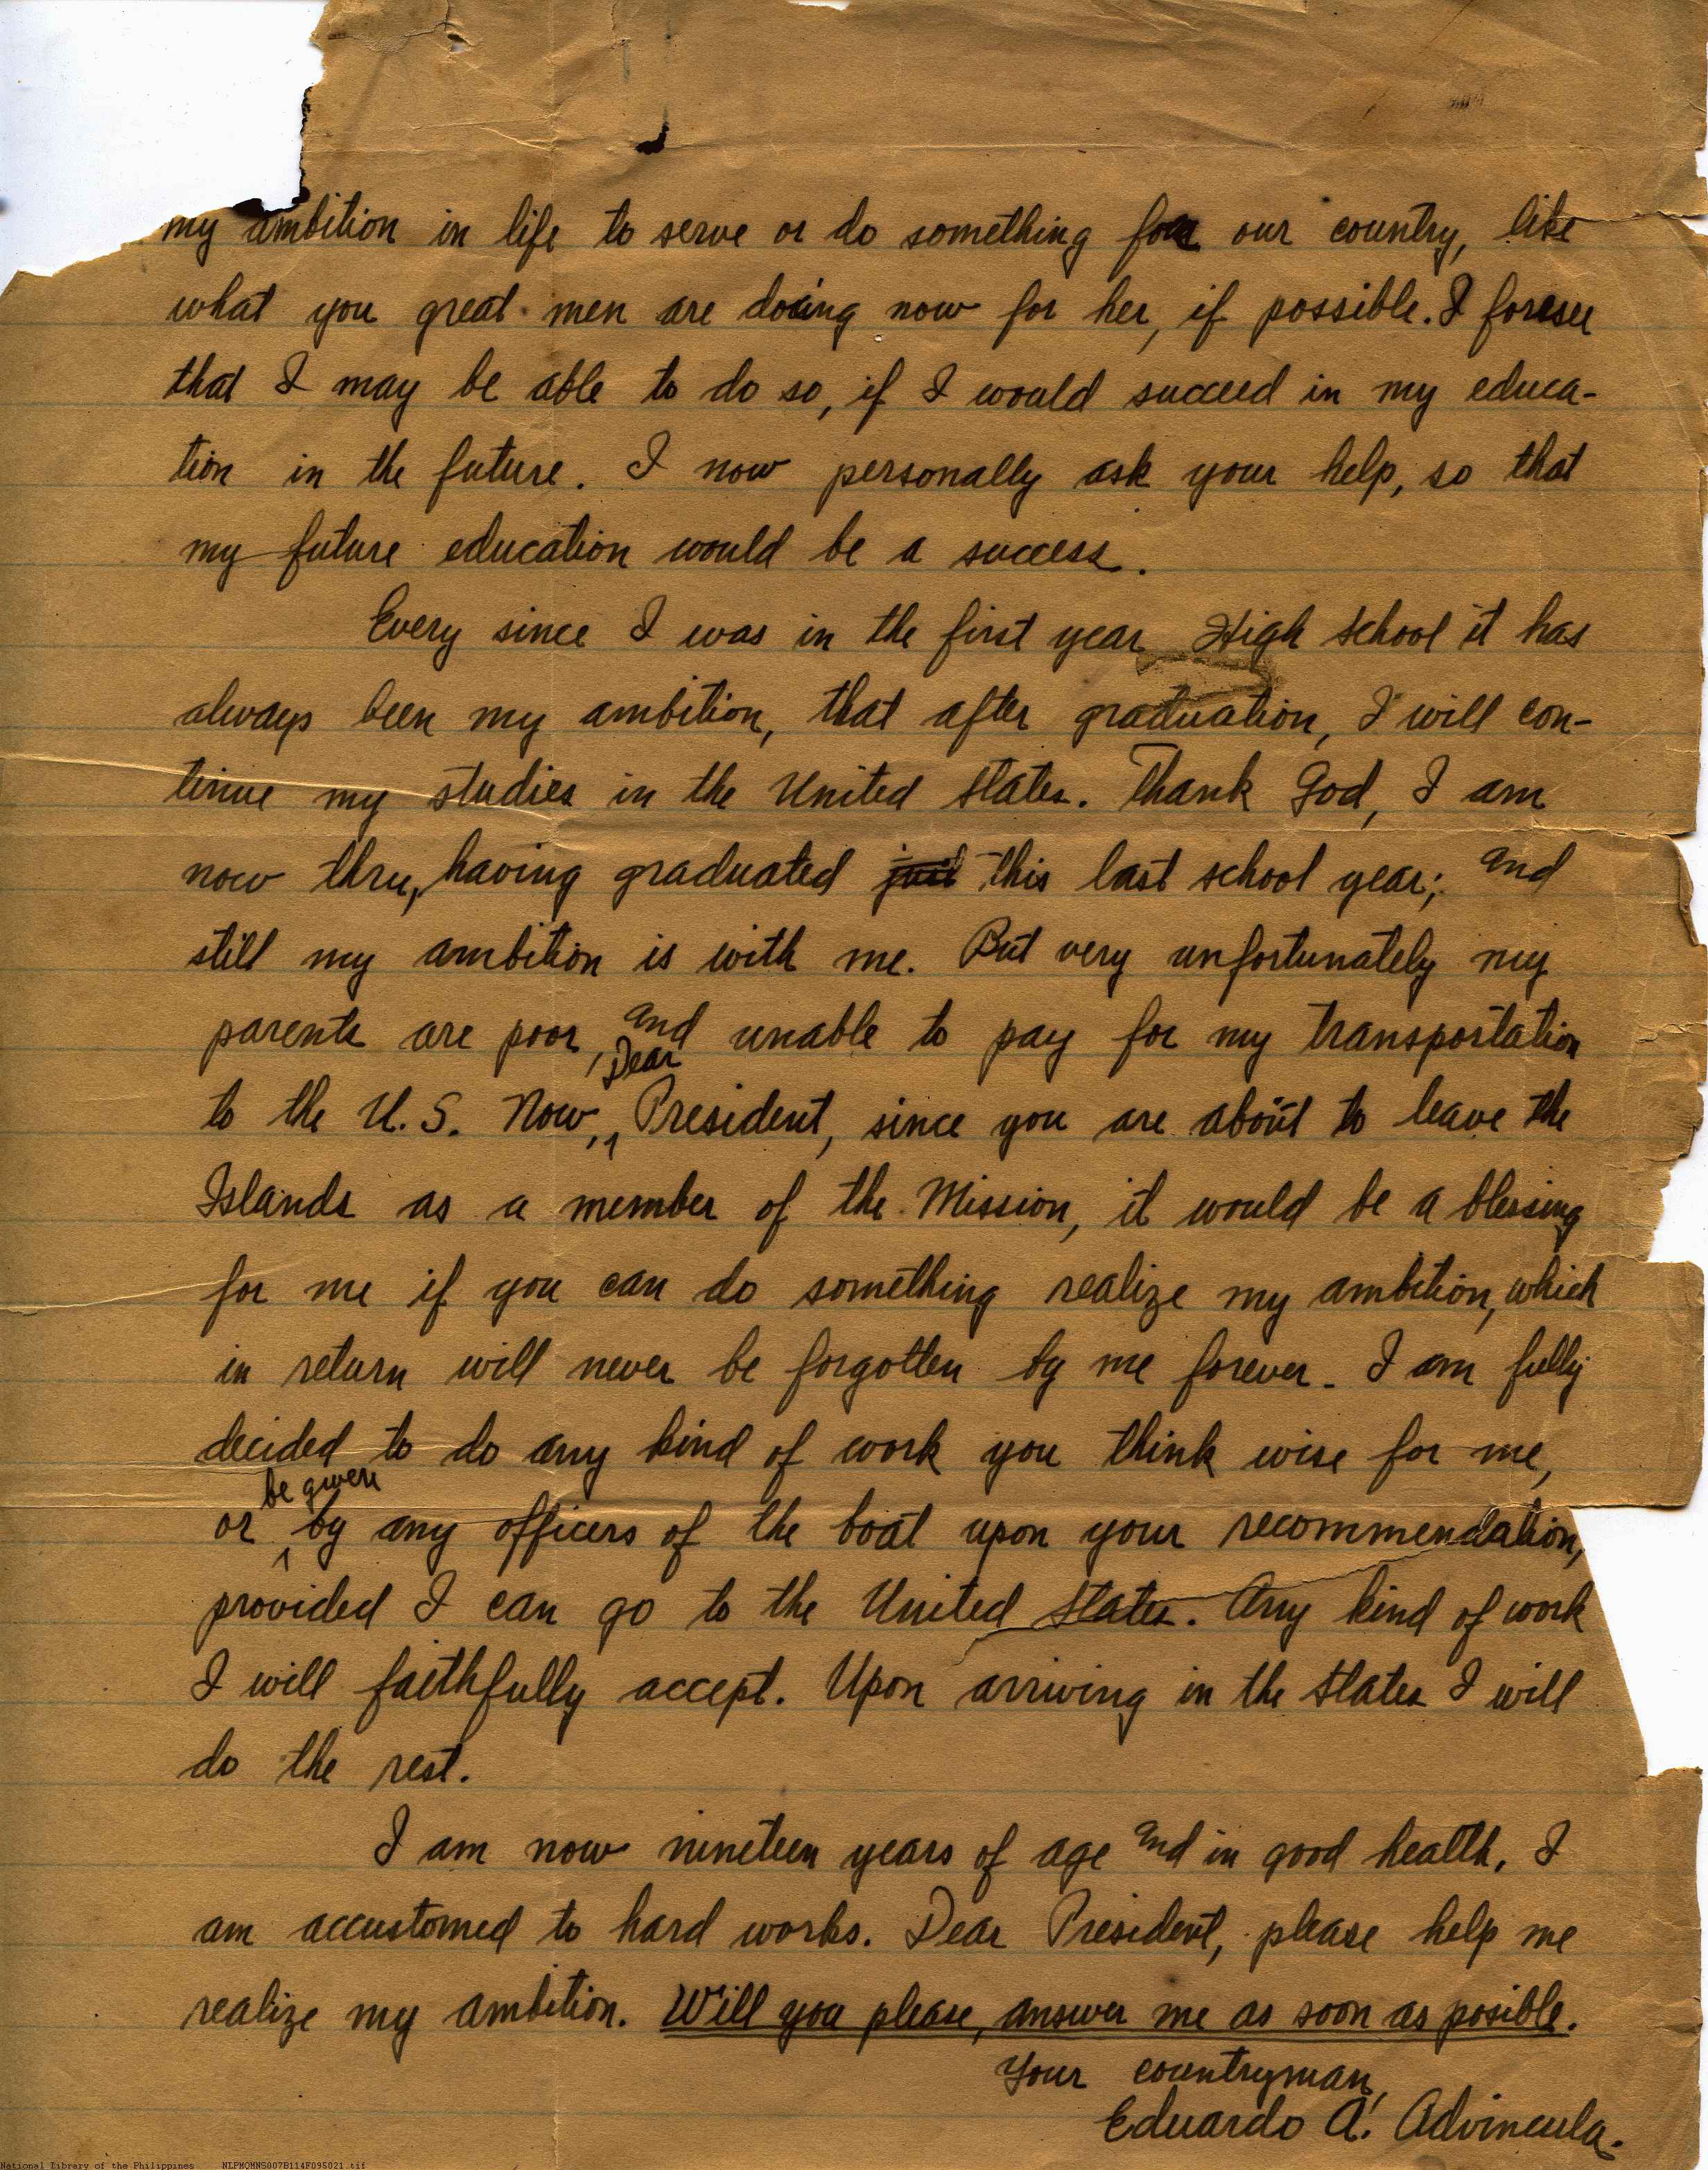 my ambition in life to serve or do something for our country, like
what you great men are doing now for her, if possible. I foresee
that I may be able to do so, if I would succeed in my educa-
tion in the future. I now personally ask your help, so that
my future education would be a success.
Every since I was in the first year High School it has
always been my ambition, that after graduation, I will con-
tinue my studies in the United States. Thank God, I am
now thru, having graduated just this last school year; and
still my ambition is with me. But very unfortunately my
parents are poor, and unable to pay for my transportation
to the U.S. Now, Dear President, since you are about to leave the
Islands as a member of the Mission, it would be a blessing
for me if you can do something realize my ambition, which
in return will never be forgotten by me forever. I am fully
decided to do any kind of work you think wise for me,
or be given by any officers of the boat upon your recommendation,
provided I can go to the United States. Any kind of work
I will faithfully accept. Upon arriving in the States I will
do the rest.
I am now nineteen years of age and in good health. I
am accustomed to hard works. Dear President, please help me
realize my ambition. Will you please, answer me as soon as posible.
Your countryman,
Eduardo A. Advincula.
National Library of the Philippines NLPMOMNS007B114F095021.tif